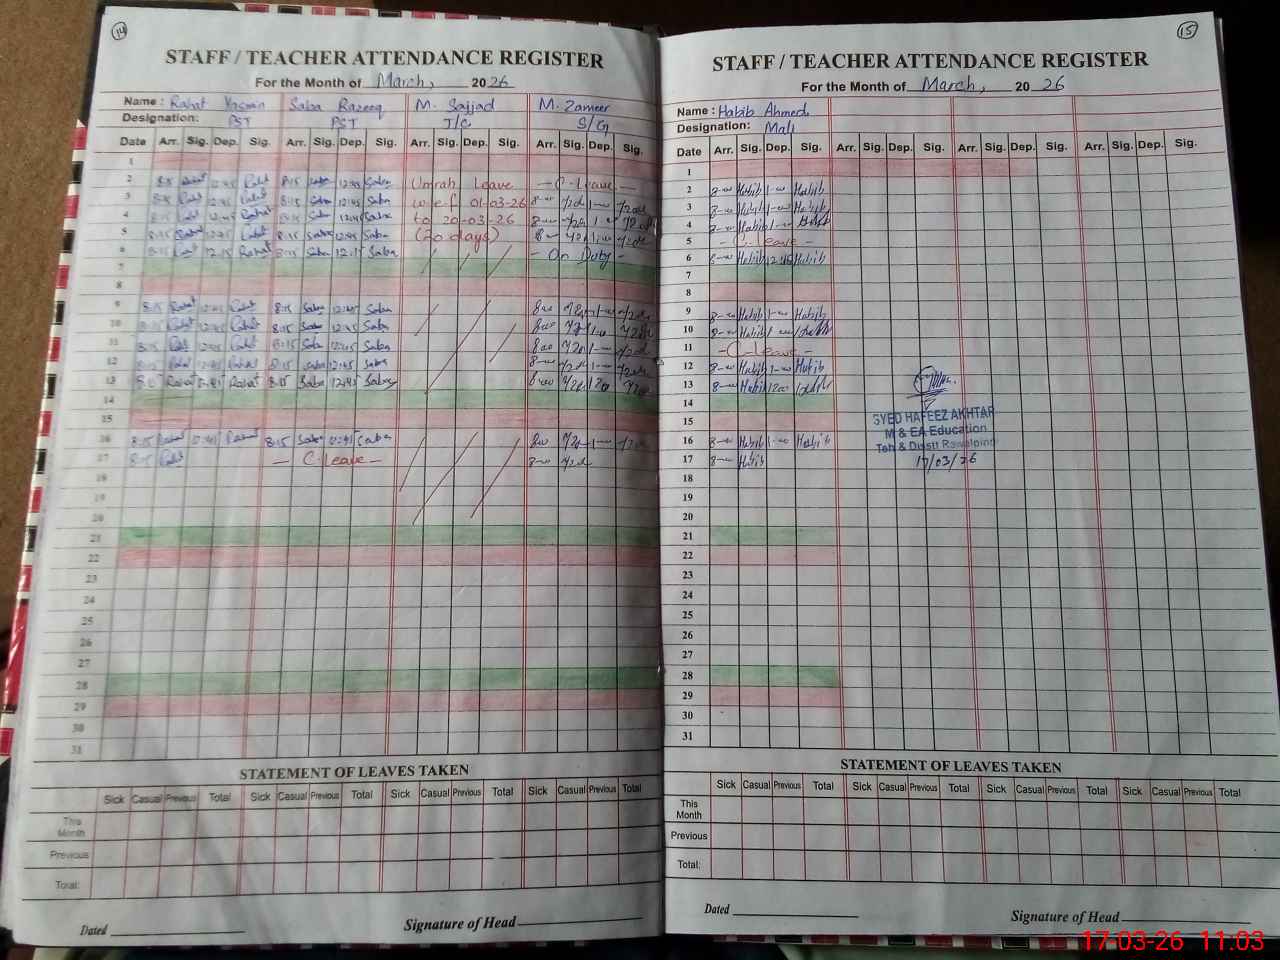 14
STAFF / TEACHER ATTENDANCE REGISTER
For the Month of March, 2026
Name : Rahat Yasmin Saba Razeeq M. Sajjad M. Zameer
Designation: PST PST J/C S/G
Date Arr. Sig. Dep. Sig. Arr. Sig. Dep. Sig. Arr. Sig. Dep. Sig. Arr. Sig. Dep. Sig.
1
2 8:15 12:45 Rahat 8:15 Saba 12:45 Saba Umrah Leave — C-Leave —
3 8:15 Rahat 12:45 Rahat 8:15 Saba 12:45 Saba w.e.f 01-03-26 8-00 1-00
4 8:15 Rahat 12:45 Rahat 8:15 Saba 12:45 Saba to 20-03-26 8-00 1-00
5 8:15 Rahat 12:45 Rahat 8:15 Saba 12:45 Saba (20 days) 8-00 1-00
6 8:15 Rahat 12:15 Rahat 8:15 Saba 12:15 Saba - On Duty -
7
8
9 8:15 Rahat 12:45 Rahat 8:15 Saba 12:45 Saba 8-00 1-00
10 8:15 Rahat 12:45 Rahat 8:15 Saba 12:45 Saba 8-00 1-00
11 8:15 Rahat 12:45 Rahat 8:15 Saba 12:45 Saba 8-00 1-00
12 8:15 Rahat 12:45 Rahat 8:15 Saba 12:45 Saba 8-00 1-00
13 Rahat Rahat 8:15 Saba 12:45 Saba 8-00
14
15
16 8:15 Rahat 12:45 Rahat 8:15 Saba 12:45 Saba 8-00 1-00
17 8:15 Rahat — C-Leave — 8-00
18
19
20
21
22
23
24
25
26
27
28
29
30
31
STATEMENT OF LEAVES TAKEN
Sick Casual Previous Total Sick Casual Previous Total Sick Casual Previous Total Sick Casual Previous Total
This Month
Previous
Total:
Dated Signature of Head
15
STAFF / TEACHER ATTENDANCE REGISTER
For the Month of March, 2026
Name : Habib Ahmed
Designation: Mali
Date Arr. Sig. Dep. Sig. Arr. Sig. Dep. Sig. Arr. Sig. Dep. Sig. Arr. Sig. Dep. Sig.
1
2 8-00 Habib 1-00 Habib
3 8-00 Habib 1-00 Habib
4 8-00 Habib 1-00 Habib
5 - C-Leave -
6 8-00 Habib 12:15 Habib
7
8
9 8-00 Habib 1-00 Habib
10 8-00 Habib 1-00 Habib
11 - C-Leave -
12 8-00 Habib 1-00 Habib
13 8-00 Habib 12-00 Habib
14
15
16 8-00 Habib 1-00 Habib
17 8-00 Habib
18
19
20
21
22
23
24
25
26
27
28
29
30
31
SYED HAFEEZ AKHTAR
M & EA Education
Teh & Distt Rawalpindi
17/03/26
STATEMENT OF LEAVES TAKEN
Sick Casual Previous Total Sick Casual Previous Total Sick Casual Previous Total Sick Casual Previous Total
This Month
Previous
Total:
Dated Signature of Head
17-03-26 11:03